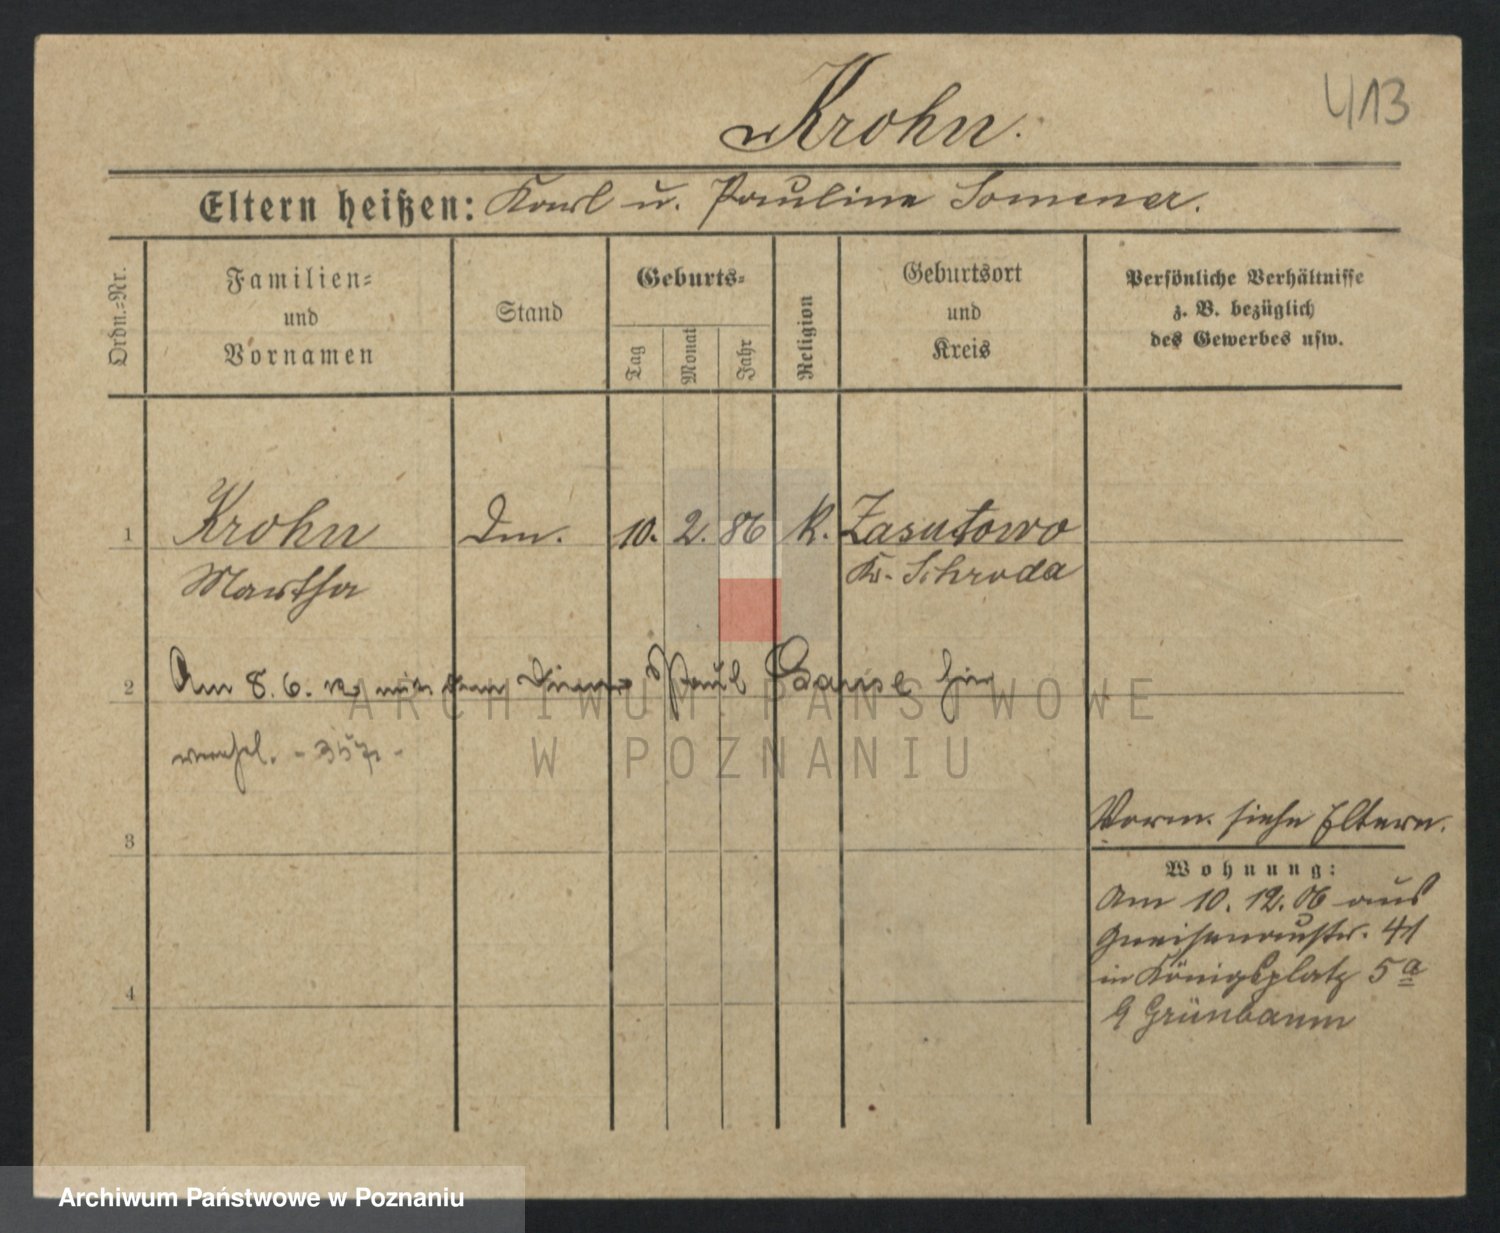 413
Krohn.
Eltern heißen: Karl u. Pauline Sommer.
Ordn.-Nr.
Familien-
und
Vornamen
Stand
Geburts-
Tag
Monat
Jahr
Religion
Geburtsort
und
Kreis
Persönliche Verhältnisse
z. B. bezüglich
des Gewerbes usw.
1 Krohn Dm. 10. 2. 86 k. Zasutowo
Martha Kr. Schroda
2 Am 8. 6. mit dem Diener Paul hier
verehel.
ARCHIWUM PAŃSTWOWE
W POZNANIU
3
Vorm. siehe Eltern.
Wohnung:
Am 10. 12. 06 aus
Gneisenaustr. 41
in Königsplatz 5a
b Grünbaum
4
Archiwum Państwowe w Poznaniu